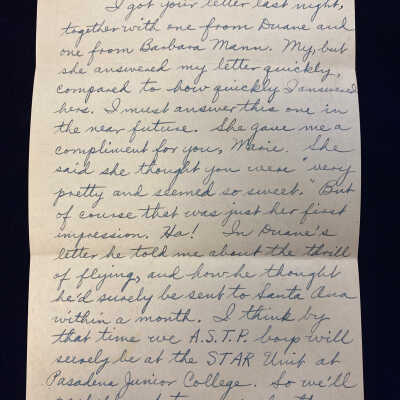 I got your letter last night,
together with one from Duane and
one from Barbara Mann. My, but
she answered my letter quickly,
compared to how quickly I answered
hers. I must answer this one in
the near future. She gave me a
compliment for you, Marie. She
said she thought you were "very
pretty and seemed so sweet." But
of course that was just her first
impression. Ha! In Duane's
letter he told me about the thrill
of flying, and how he thought
he'd surely be sent to Santa Ana
within a month. I think by
that time we A.S.T.P. boys will
surely be at the STAR Unit at
Pasadena Junior College. So we'll